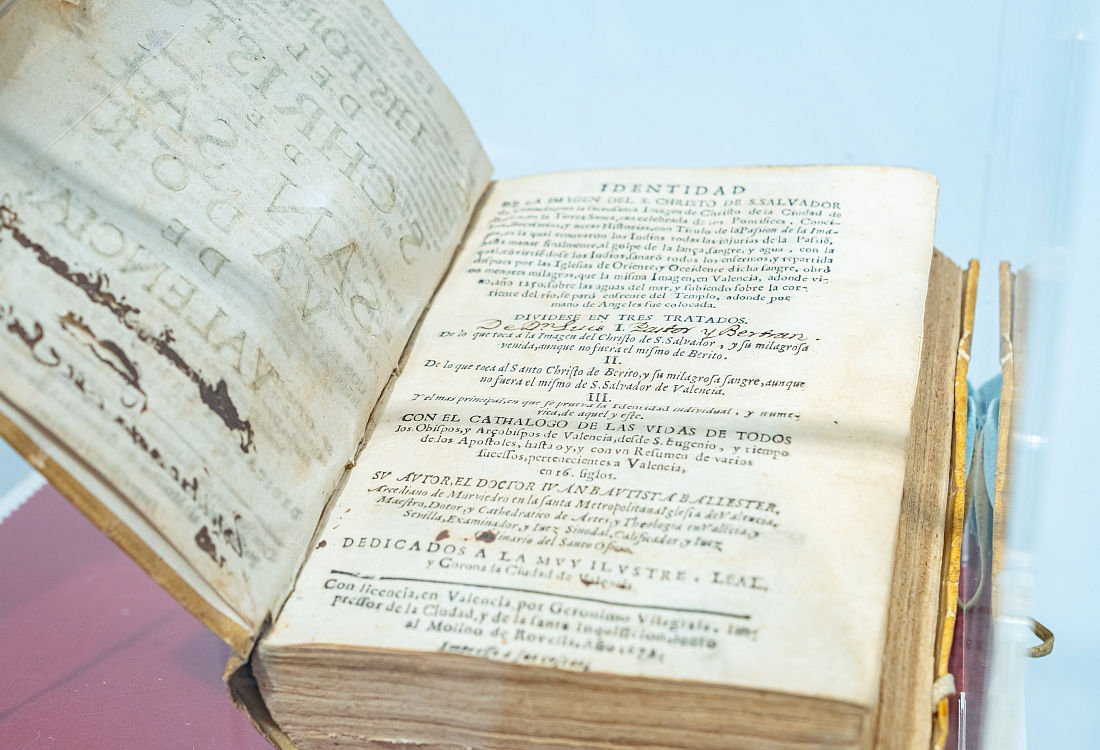 IDENTIDAD
DE LA IMAGEN DEL S. CHRISTO DE S. SALVADOR
de Valencia, con la sacrosanta Imagen de Christo de la Ciudad de
en la Tierra Santa, tan celebrada de los Pontifices, Conci-
y otras Historias, con Titulo de la Passion de la Ima-
gen, en la qual renovaron los Iudios todas las injurias de la Passiõ,
hasta manar finalmente, al golpe de la lança, sangre, y agua, con la
qual, convirtiédose los Iudios, sanarõ todos los enfermos, y repartida
despues por las Iglesias de Oriente, y Occidente dicha sangre, obrò
no menores milagros, que la misma Imagen, en Valencia, adonde vi-
no, año 1250. sobre las aguas del mar, y subiendo sobre la cor-
riente del rio, se parò enfrente del Templo, adonde por
mano de Angeles fue colocada.
DIVIDESE EN TRES TRATADOS.
De Dr. Luis I. Pastor y Bertran.
De lo que toca à la Imagen del Christo de S. Salvador, y su milagrosa
venida, aunque no fuera el mismo de Berito.
II.
De lo que toca al Santo Christo de Berito, y su milagrosa sangre, aunque
no fuera el mismo de S. Salvador de Valencia.
III.
Y el mas principal, en que se prueva la Identidad individual, y nume-
rica, de aquel y este.
CON EL CATHALOGO DE LAS VIDAS DE TODOS
los Obispos, y Arçobispos de Valencia, desde S. Eugenio, y tiempo
de los Apostoles, hasta oy, y con vn Resumen de varios
sucessos, pertenecientes a Valencia,
en 16. siglos.
SV AVTOR, EL DOCTOR IVAN BAVTISTA BALLESTER,
Arcediano de Murviedro en la santa Metropolitana Iglesia de Valencia,
Maestro, Dotor, y Cathedratico de Artes, y Theologia en Valencia, y
Sevilla, Examinador, y Iuez Sinodal, Calificador, y Iuez
Ordinario del Santo Oficio.
DEDICADOS A LA MVY ILVSTRE, LEAL,
y Corona la Ciudad de Valencia.
Con licencia, en Valencia, por Geronimo Vilagrasa, Im-
pressor de la Ciudad, y de la santa Inquisicion, junto
al Molino de Rovella, Año 1672.